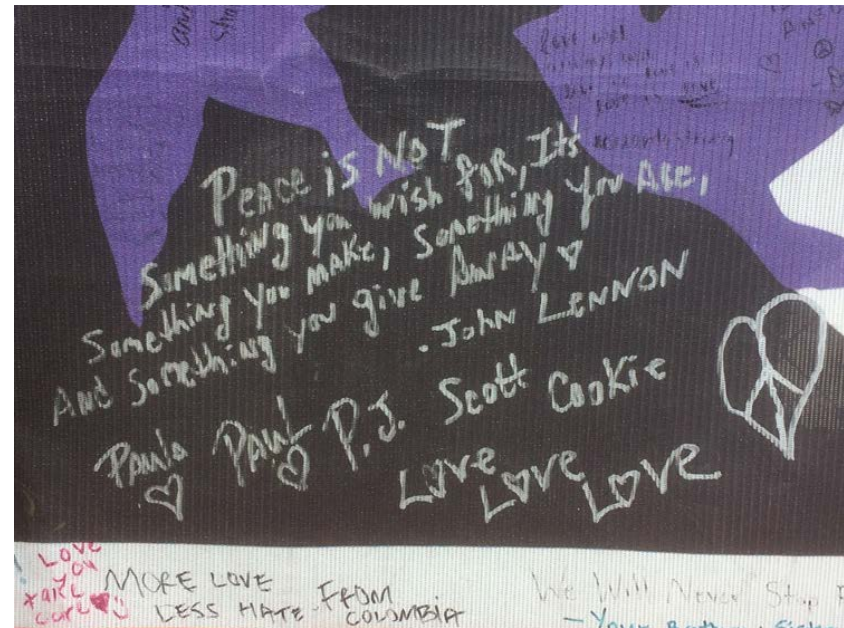 Love will
Love is Love
PEACE iS NOT
Something you wish foR, It's
Something you MAKE, Something You ARE,
And Something you give AWAY
. John LENNON
Paula PAUL P.J. Scott Cookie
Love Love Love
LOVE
You
TAKE
Care
MORE LOVE
LESS HATE. FROM
COLOMBIA
We Will Never Stop
- Your